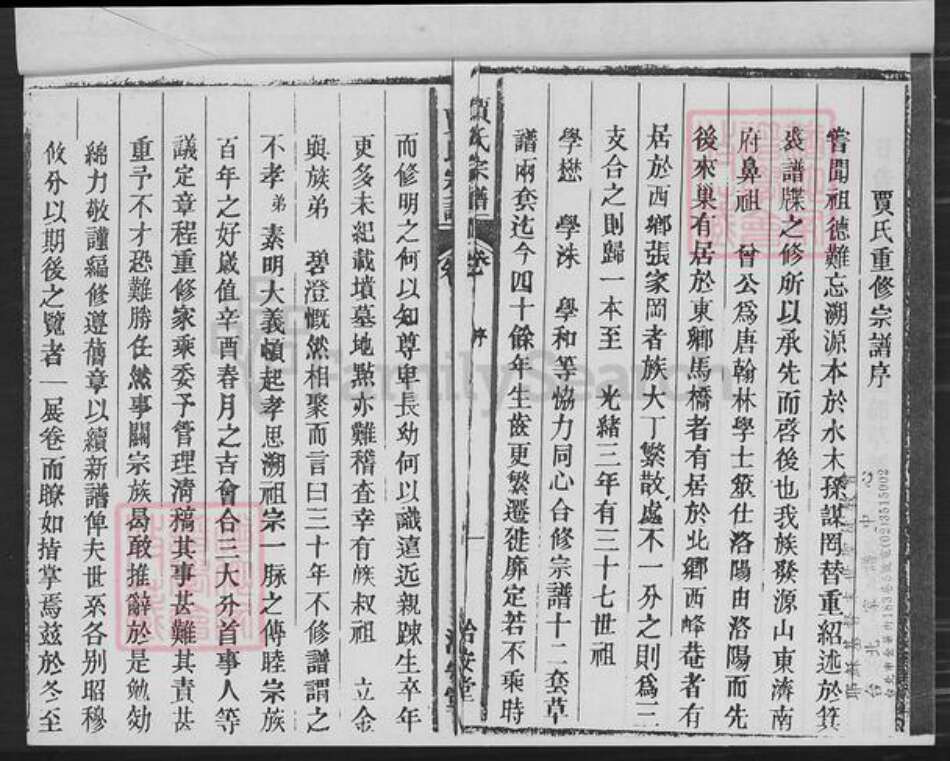 賈氏重修宗譜序
嘗聞祖德難忘溯源本於水木孫謀罔替重紹述於箕
裘譜牒之修所以承先而啓後也我族發源山東濟南
府鼻祖 曾公爲唐翰林學士籛仕洛陽由洛陽而先
後來巢有居於東鄉馬橋者有居於北鄉西峰菴者有
居於西鄉張家岡者族大丁繁散處不一分之則爲三
支合之則歸一本至 光緒三年有三十七世祖
學懋 學洙 學和等協力同心合修宗譜十二套草
譜兩套迄今四十餘年生齒更繁遷徙靡定若不乘時
賈氏宗譜
序
一
治安堂
而修明之何以知尊卑長幼何以識遠近親踈生卒年
更多未紀載墳墓地㸃亦難稽查幸有族叔祖 立金
與族弟 碧澄慨然相聚而言曰三十年不修譜謂之
不孝弟 素明大義頓起孝思溯祖宗一脉之傳睦宗族
百年之好歲值辛酉春月之吉會合三大分首事人等
議定章程重修家乘委予管理清稿其事甚難其責甚
重予不才恐難勝任然事關宗族曷敢推辭於是勉効
綿力敬謹編修遵舊章以續新譜俾夫世系各別昭穆
攸分以期後之覽者一展卷而瞭如指掌焉兹於冬至
FamilySearch
台北 家譜中心
(02)3515002